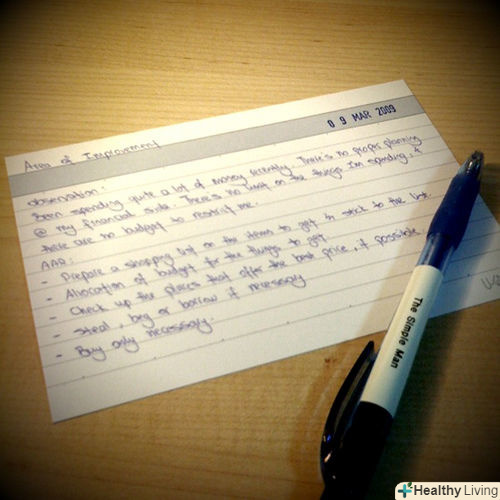 Area of Improvement
09 MAR 2009
Observation:
Been spending quite a lot of money recently. There's no proper planning
@ my financial side. There's no limit on the things I'm spending, &
there are no budget to restrict me.
AAR:
- Prepare a shopping list on the items to get & stick to the list.
- Allocation of budget for the things to get
- Check up the places that offer the best price, if possible.
- Steal, beg or borrow if necessary
- Buy only necessary.
The Simple Man
Healthy Living